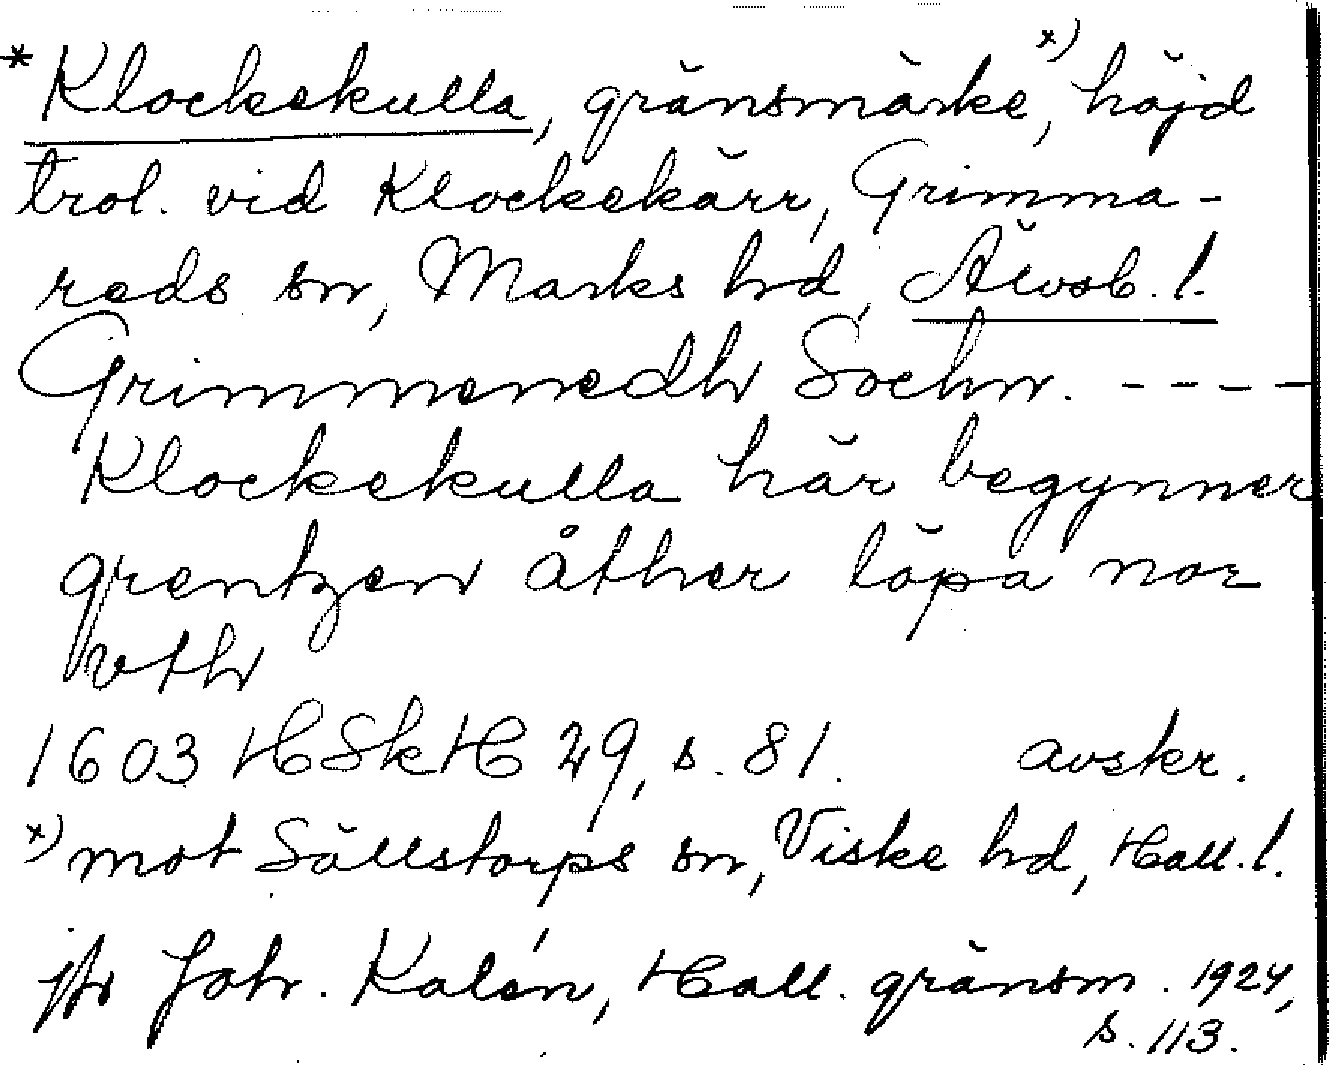 * Klockekulla, gränsmärke, x) höjd
trol. vid Klockekärr, Grimma-
reds sn, Marks hd, Älvsb. l.
Grimmeredh Sochn. ----
Klockekulla här begynner
grentzen åther löpa nor
vth
1603 HSkH 29, s. 81. avskr.
x) mot Sällstorps sn, Viske hd, Hall. l.
jfr Joh. Kalén, Hall. gränsm. 1924,
s. 113.